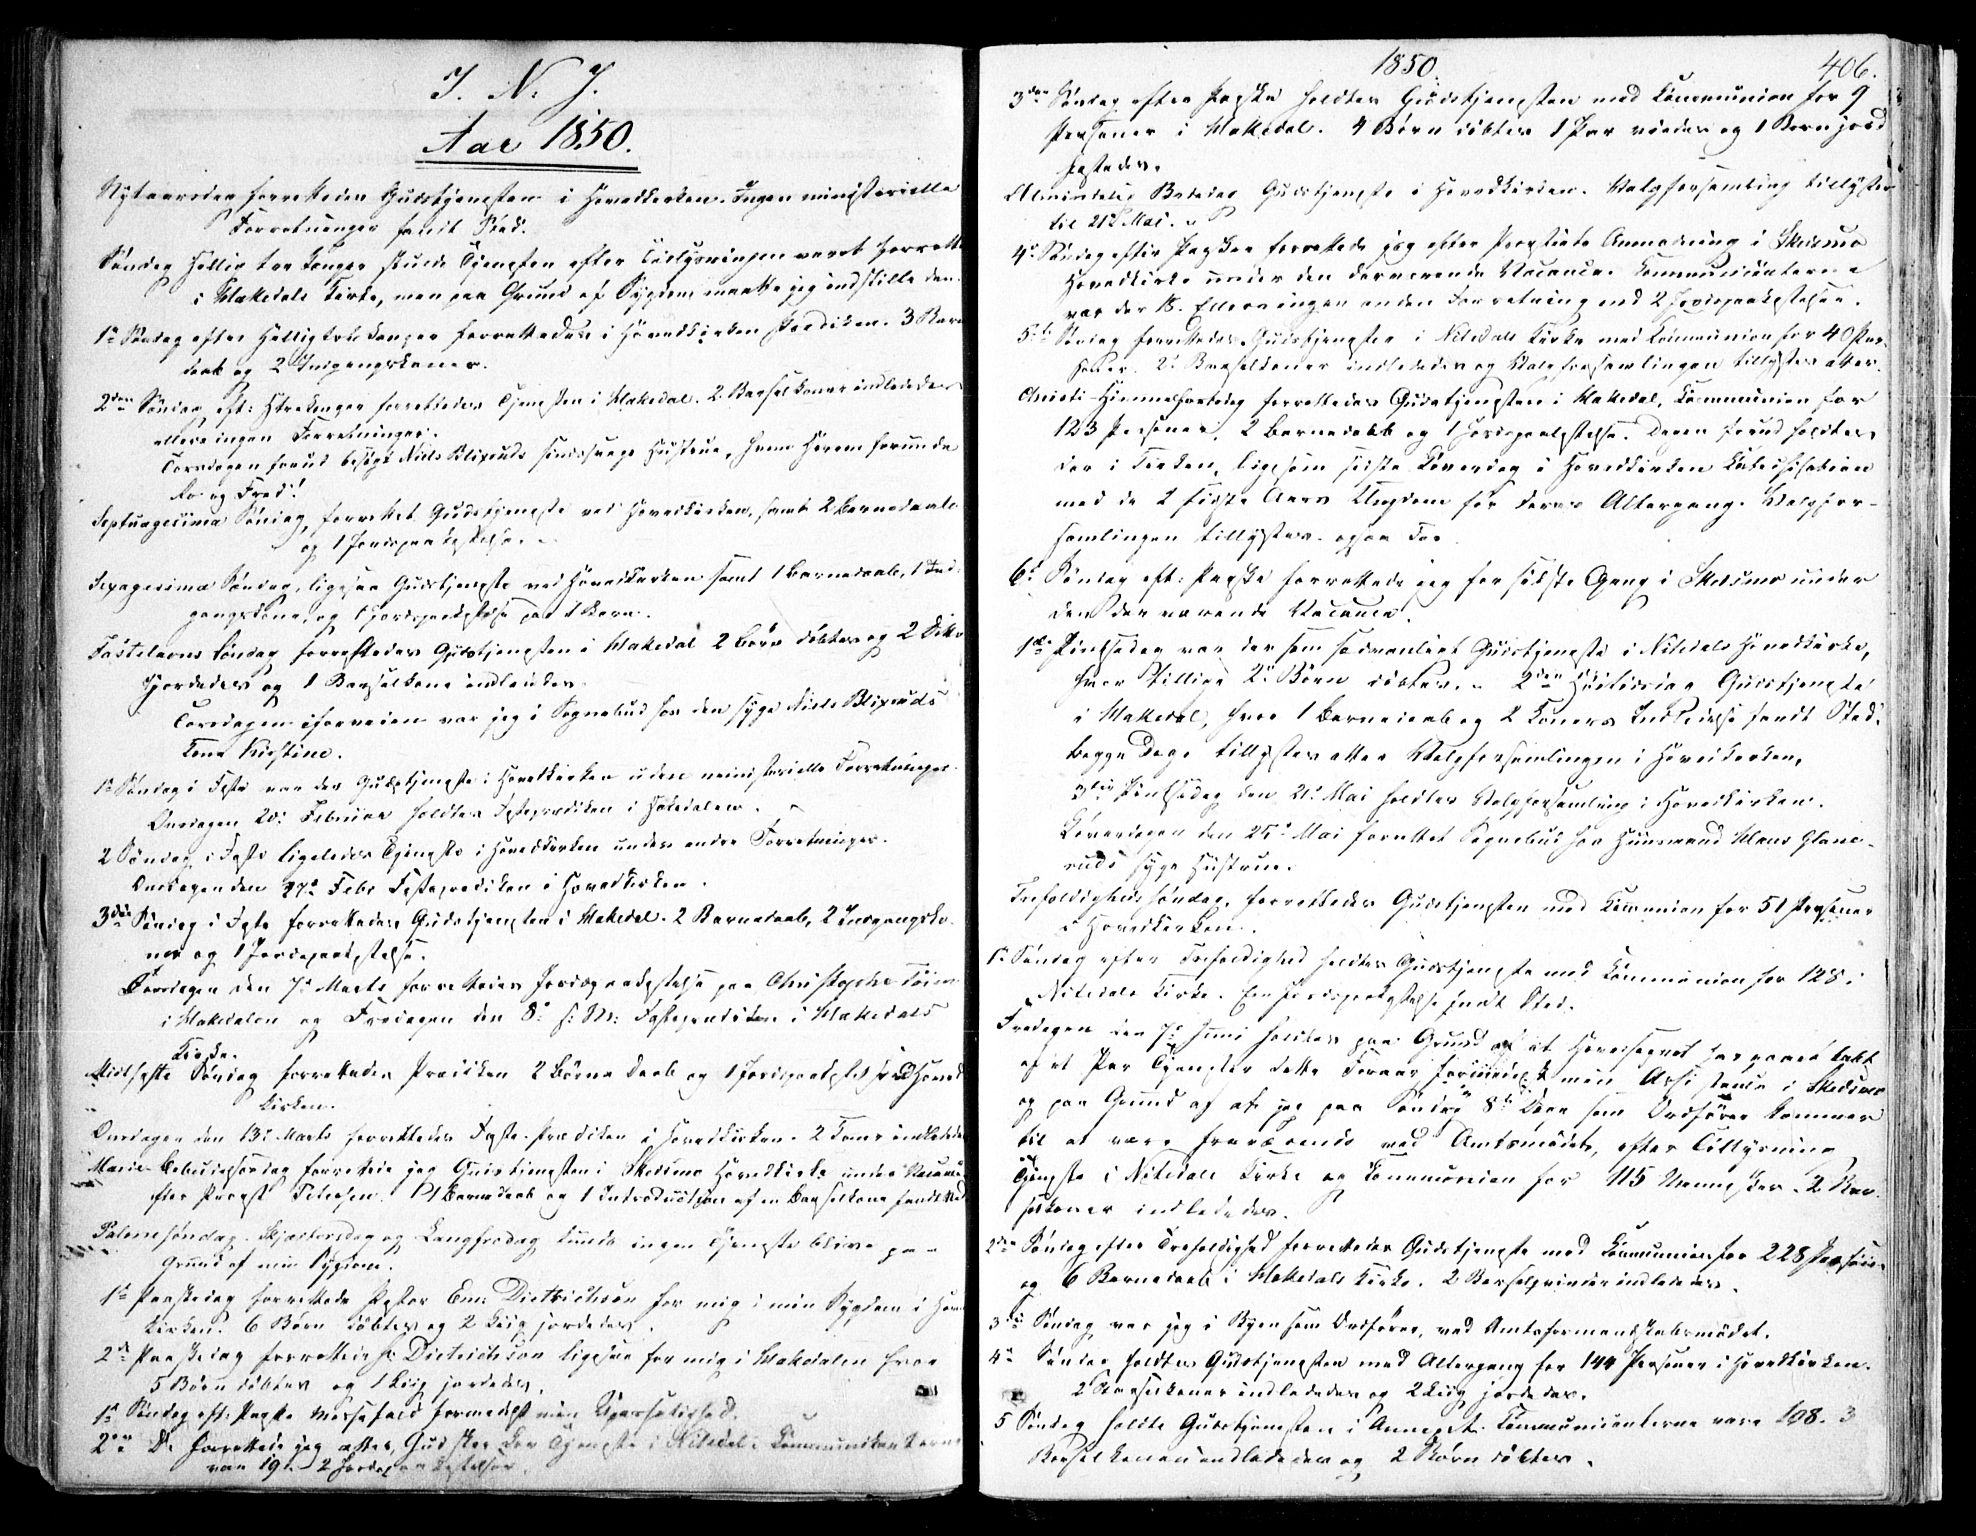 I. N. J.
Aar 1850.
Nytaarsdag forrettedes Gudstjenesten i Hovedkirken. Ingen ministerielle
Forretninger fandt Sted.
Søndag Hellig tre Konger skulde Tjenesten efter Tillysningen været forrettet
i Hakedals Kirke, men paa Grund af Sygdom maatte jeg indstille den.
1ste Søndag efter Helligtrekonger forrettedes i Hovedkirken Prædiken. 3 Barne
daab og 2 Indgangskoner.
2den Søndag eft: Htrekonger forrettedes Tjenesten i Hakedal. 2 Barselkoner indlededes
ellers ingen Forretninger.
Torsdagen forud besøgt Niels Blixruds sindssvage Hustrue, hvem Herren forunde
Ro og Fred!
Septuagesima Søndag, forrettet Gudstjeneste ved Hovedkirken, samt 2 Barnedaab
og 1 Jordspaakastelse.
Sexagesima Søndag, ligesaa Gudstjeneste ved Hovedkirken samt 1 Barnedaab, 1 Ind-
gangskone, og 1 Jordspaakastelse paa 1 Barn.
Fastelavns Søndag forrettedes Gudstjenesten i Hakedal 2 Børn døbtes og 2 Ditto
Jordedes og 1 Barselkone indlededes.
Torsdagen iforveien var jeg i Sognebud hos den syge Niels Blixruds
Kone Kirstine.
1ste Søndag i Faste var der Gudstjeneste i Hovedkirken uden ministerielle Forretninger.
Onsdagen 20de Februar holdtes Fasteprædiken i Hakedalen.
2 Søndag i Faste ligeledes Tjeneste i Hovedkirken uden andre Forretninger.
Onsdagen den 27de Febr Fasteprædiken i Hovedkirken.
3die Søndag i Faste forrettedes Gudstjenesten i Hakedal. 2 Barnedaab, 2 Indgangsko-
ner og 1 Jordspaakastelse.
Torsdagen den 7de Marts forrettedes Jordspaakastelse paa Christopher
i Hakedalen og Fredagen den 8de s: M: Fasteprædiken i Hakedals
Kirke.
Midfaste Søndag forrettedes Prædiken 2 Børne Daab og 1 Jordspaakastelse ved Hoved
kirken.
Onsdagen den 13de Marts forrettedes Faste-Prædiken i Hovedkirken. 2 Koner indlededes
Mariæ Bebudelsesdag forrettede jeg Gudstjenesten i Skedsmo Hovedkirke under Vacancen
efter Provst . 1 Barnedaab og 1 Introduction af en Barselkone fandt Sted
Palmesøndag, Skjærtorsdag og Langfredag kunde ingen Tjeneste blive paa
Grund af min Sygdom.
1ste Paaskedag forrettede Pastor Em: Dietrichson for mig i min Sygdom i Hoved
kirken. 6 Børn døbtes og 2 Liig jordedes.
2den Paaskedag forrettede Hr Dietrichson ligesaa for mig i Hakedalen hvor
5 Børn døbtes og 1 Liig jordedes.
1ste Søndag eft: Paaske Messefald formedelst min Upasselighed.
2den Do forrettede jeg atter, Gud skee Lov Tjeneste i Nitedal. Communikanterne
var 19. 2 Jordspaakastelser.
1850.
406.
3die Søndag efter Paaske holdtes Gudstjenesten med Communion for 9
Personer i Hakedal. 4 Børn døbtes 1 Par viedes og 1 Barn jord
fæstedes.
Almindelig Bededag Gudstjeneste i Hovedkirken. Valgforsamling tillystes
til 21de Mai.
4de Søndag efter Paaske forrettede jeg efter Provstiets Anmodning i Skedsmo
Hovedkirke under den derværende Vacance. Communicanterne
var der 18. Ellers ingen anden Forretning end 2 Jordspaakastelser.
5te Søndag forrettedes Gudstjenesten i Nitedals Kirke med Communion for 40 Per-
soner. 2 Barselkoner indlededes og Valgforsamlingen tillystes atter.
Christi Himmelfartsdag forrettedes Gudstjenesten i Hakedal, Communion for
123 Personer, 2 Barnedaab og 1 Jordspaakastelse. Dagen forud holdtes
der i Kirken, ligesom sidste Løverdag i Hovedkirken Katechisation
med de 2 sidste Aars Ungdom før deres Altergang. Valgfor-
samlingen tillystes ogsaa her
6te Søndag eft: Paaske forrettede jeg for sidste Gang i Skedsmo under
den derværende Vacance.
1ste Pintsedag var der som sædvanligt Gudstjeneste i Nitedals Hovedkirke,
hvor tillige 2 Børn døbtes. 2den Høitidsdag Gudstjeneste
i Hakedal, hvor 1 Barnedaab og 2 Koners Indledelse fandt Sted.
Begge Dage tillystes atter Valgforsamlingen i Hovedkirken.
3die Pintsedag den 21de Mai holdtes Valgforsamling i Hovedkirken.
Løverdagen den 25de Mai forrettet Sognebud hos Huusmand Hans Glane-
ruds syge Hustrue.
Trefoldigheds Søndag, forrettedes Gudstjenesten med Communion for 51 Personer
i Hovedkirken.
1ste Søndag efter Trefoldighed holdtes Gudstjeneste med Communion for 128 i
Nitedals Kirke. Een Jordspaakastelse fandt Sted.
Fredagen den 7de Juni holdtes paa Grund af at Hovedsognet har savnet
af et Par Tjenester dette Foraar formedelst min Assistance i Skedsmo
og paa Grund af at jeg paa Søndag 8te Dage som Ordfører kommer
til at være fraværende ved Amtsmødet, efter Tillysning
Tjeneste i Nitedals Kirke og Communion for 115 Mennesker. 2 Bar-
selkoner indlededes.
2den Søndag efter Trefoldighed forrettedes Gudstjeneste med Communion for 228 Personer
og 6 Barnedaab i Hakedals Kirke. 2 Barselqvinder indlededes.
3die Søndag var jeg i Byen som Ordfører, ved Amtsformandskabsmødet.
4de Søndag holdtes Gudstjenesten med Altergang for 144 Personer i Hovedkirken.
2 Barselkoner indlededes og 2 Liig jordedes.
5 Søndag holdte Gudstjenesten i Annexet. Communicanterne vare 108. 3
Barselkoner indlededes og 2 Børn døbtes.